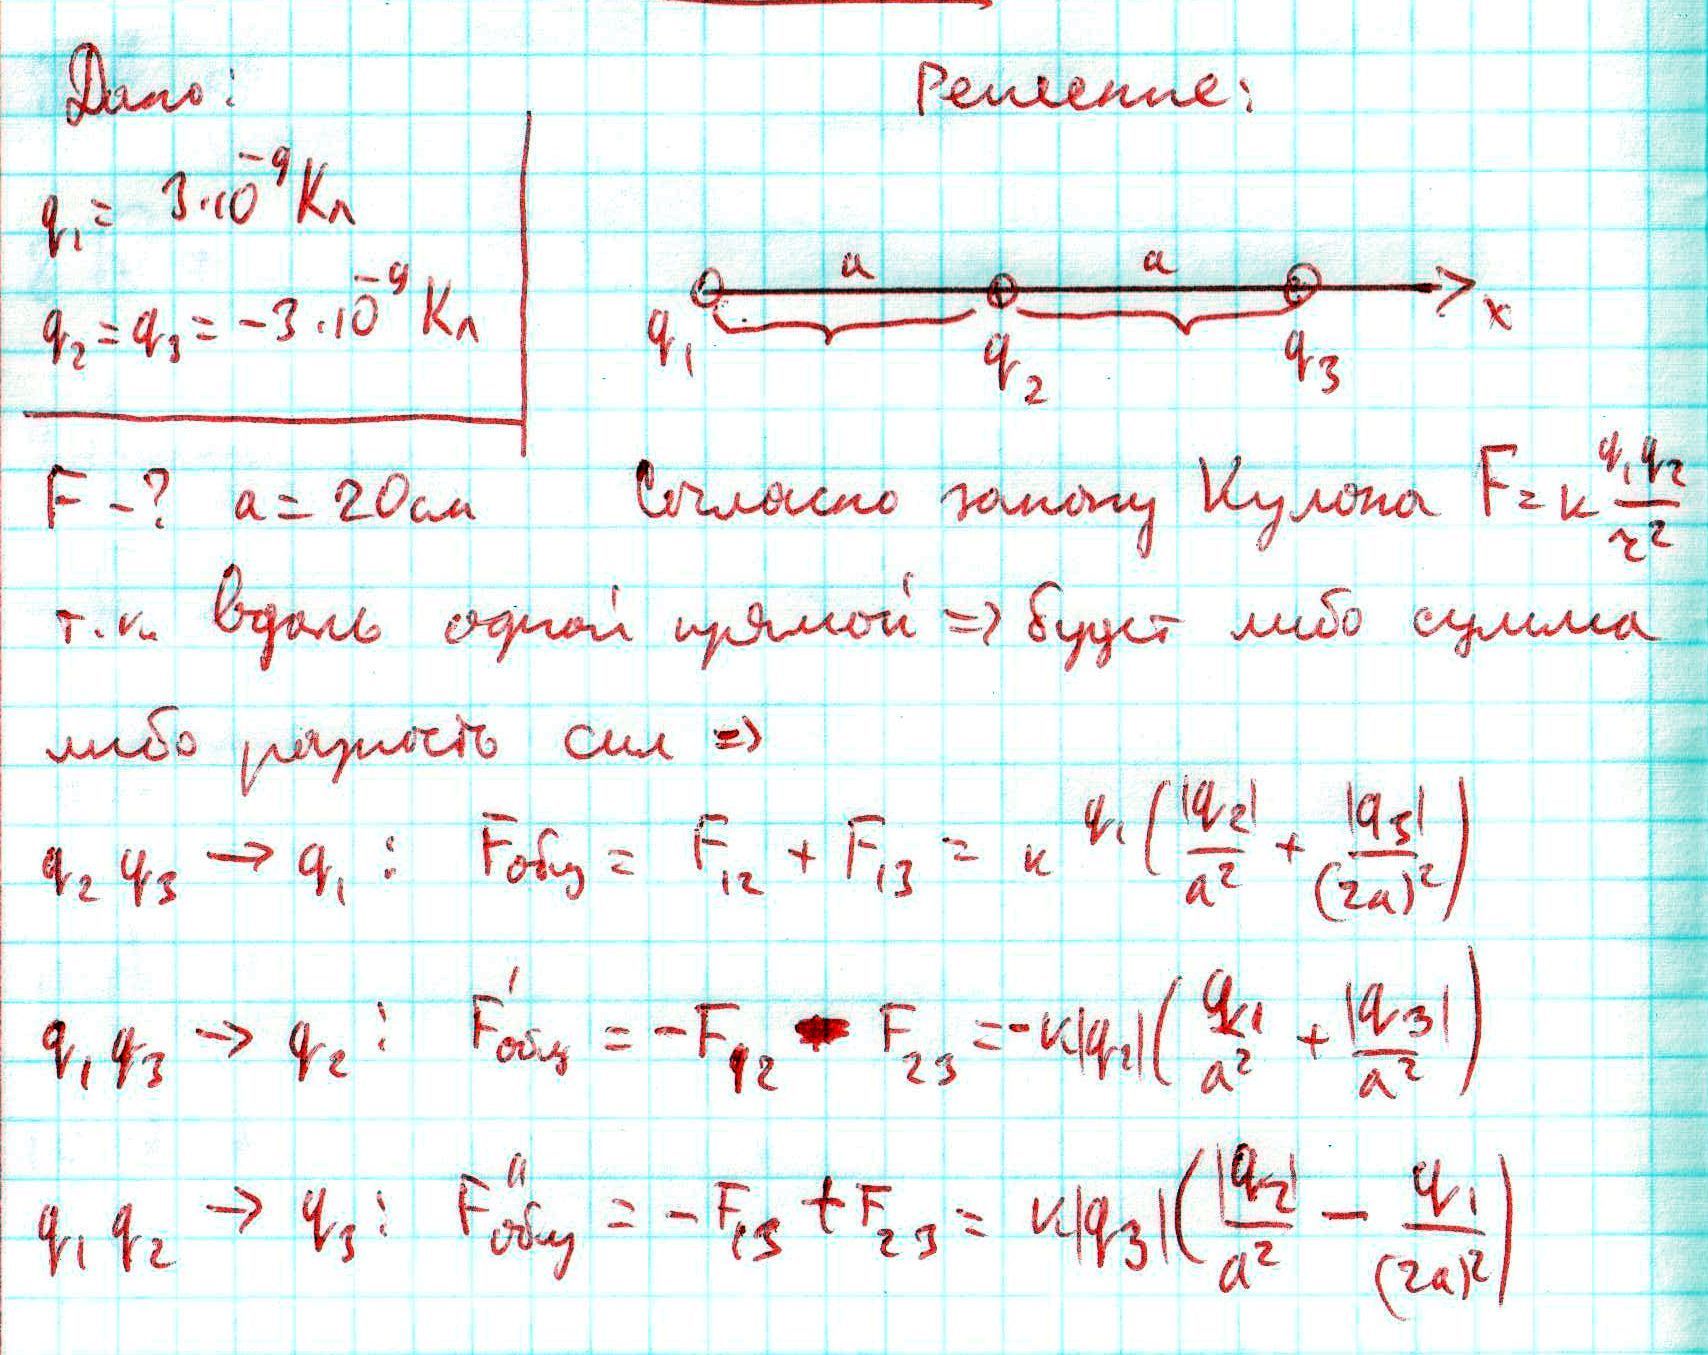 Дано:
Решение:
q₁ = 3·10⁻⁹ Кл
q₂ = q₃ = -3·10⁻⁹ Кл
a a
q₁ q₂ q₃ x
F - ? a = 20см Согласно закону Кулона F = к q₁q₂/r²
т.к. вдоль одной прямой => будет либо сумма
либо разность сил =>
q₂ q₃ → q₁ : Fобщ = F₁₂ + F₁₃ = к q₁(|q₂|/a² + |q₃|/(2a)²)
q₁ q₃ → q₂ : F'общ = -F₁₂ - F₂₃ = -к|q₂|(q₁/a² + |q₃|/a²)
q₁ q₂ → q₃ : F''общ = -F₁₃ + F₂₃ = к|q₃|(|q₂|/a² - q₁/(2a)²)